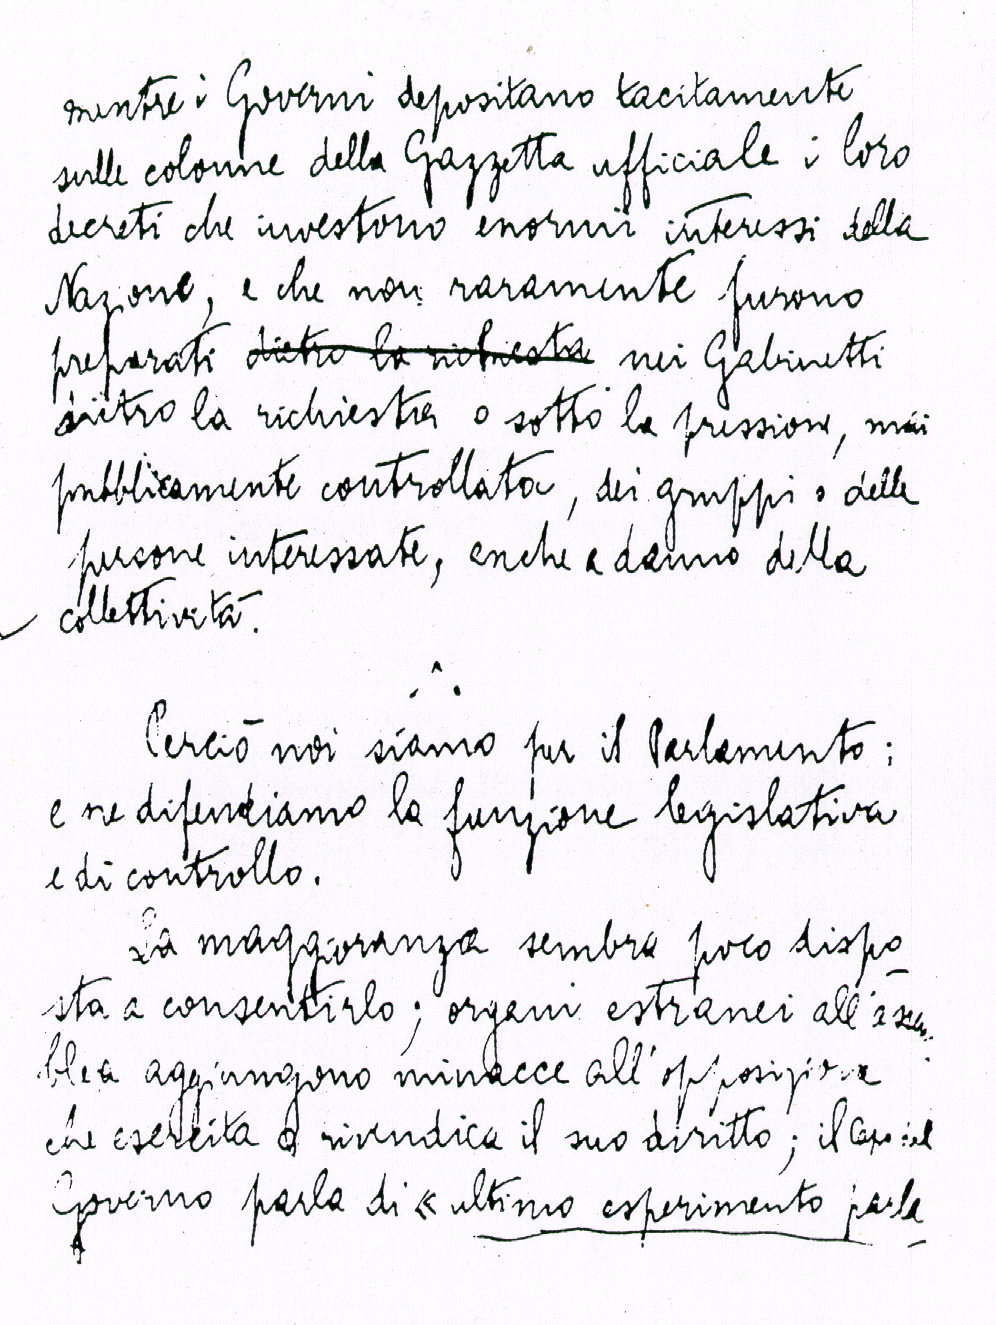 mentre i Governi depositano tacitamente
sulle colonne della Gazzetta ufficiale i loro
decreti che investono enormi interessi della
Nazione, e che non raramente furono
preparati dietro la richiesta nei Gabinetti
dietro la richiesta o sotto la pressione, mai
pubblicamente controllata, dei gruppi o delle
persone interessate, anche a danno della
collettività.
Perciò noi siamo per il Parlamento;
e ne difendiamo la funzione legislativa
e di controllo.
La maggioranza sembra poco dispo
sta a consentirlo; organi estranei all'assem
blea aggiungono minacce all'opposizione
che esercita o rivendica il suo diritto; il Capo del
Governo parla di « ultimo esperimento parla